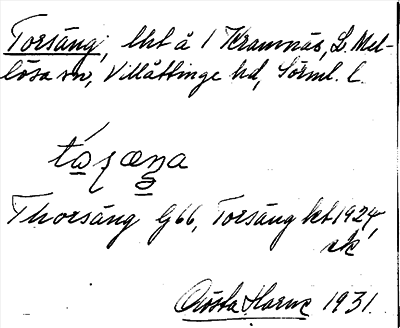 Torsäng, lht å 1 Kramnäs, L. Mel-
lösa sn, Villåttinge hd, Sörml. l.
Thorsäng G66, Torsäng kt 1924,
ek
Gösta Harne 1931.